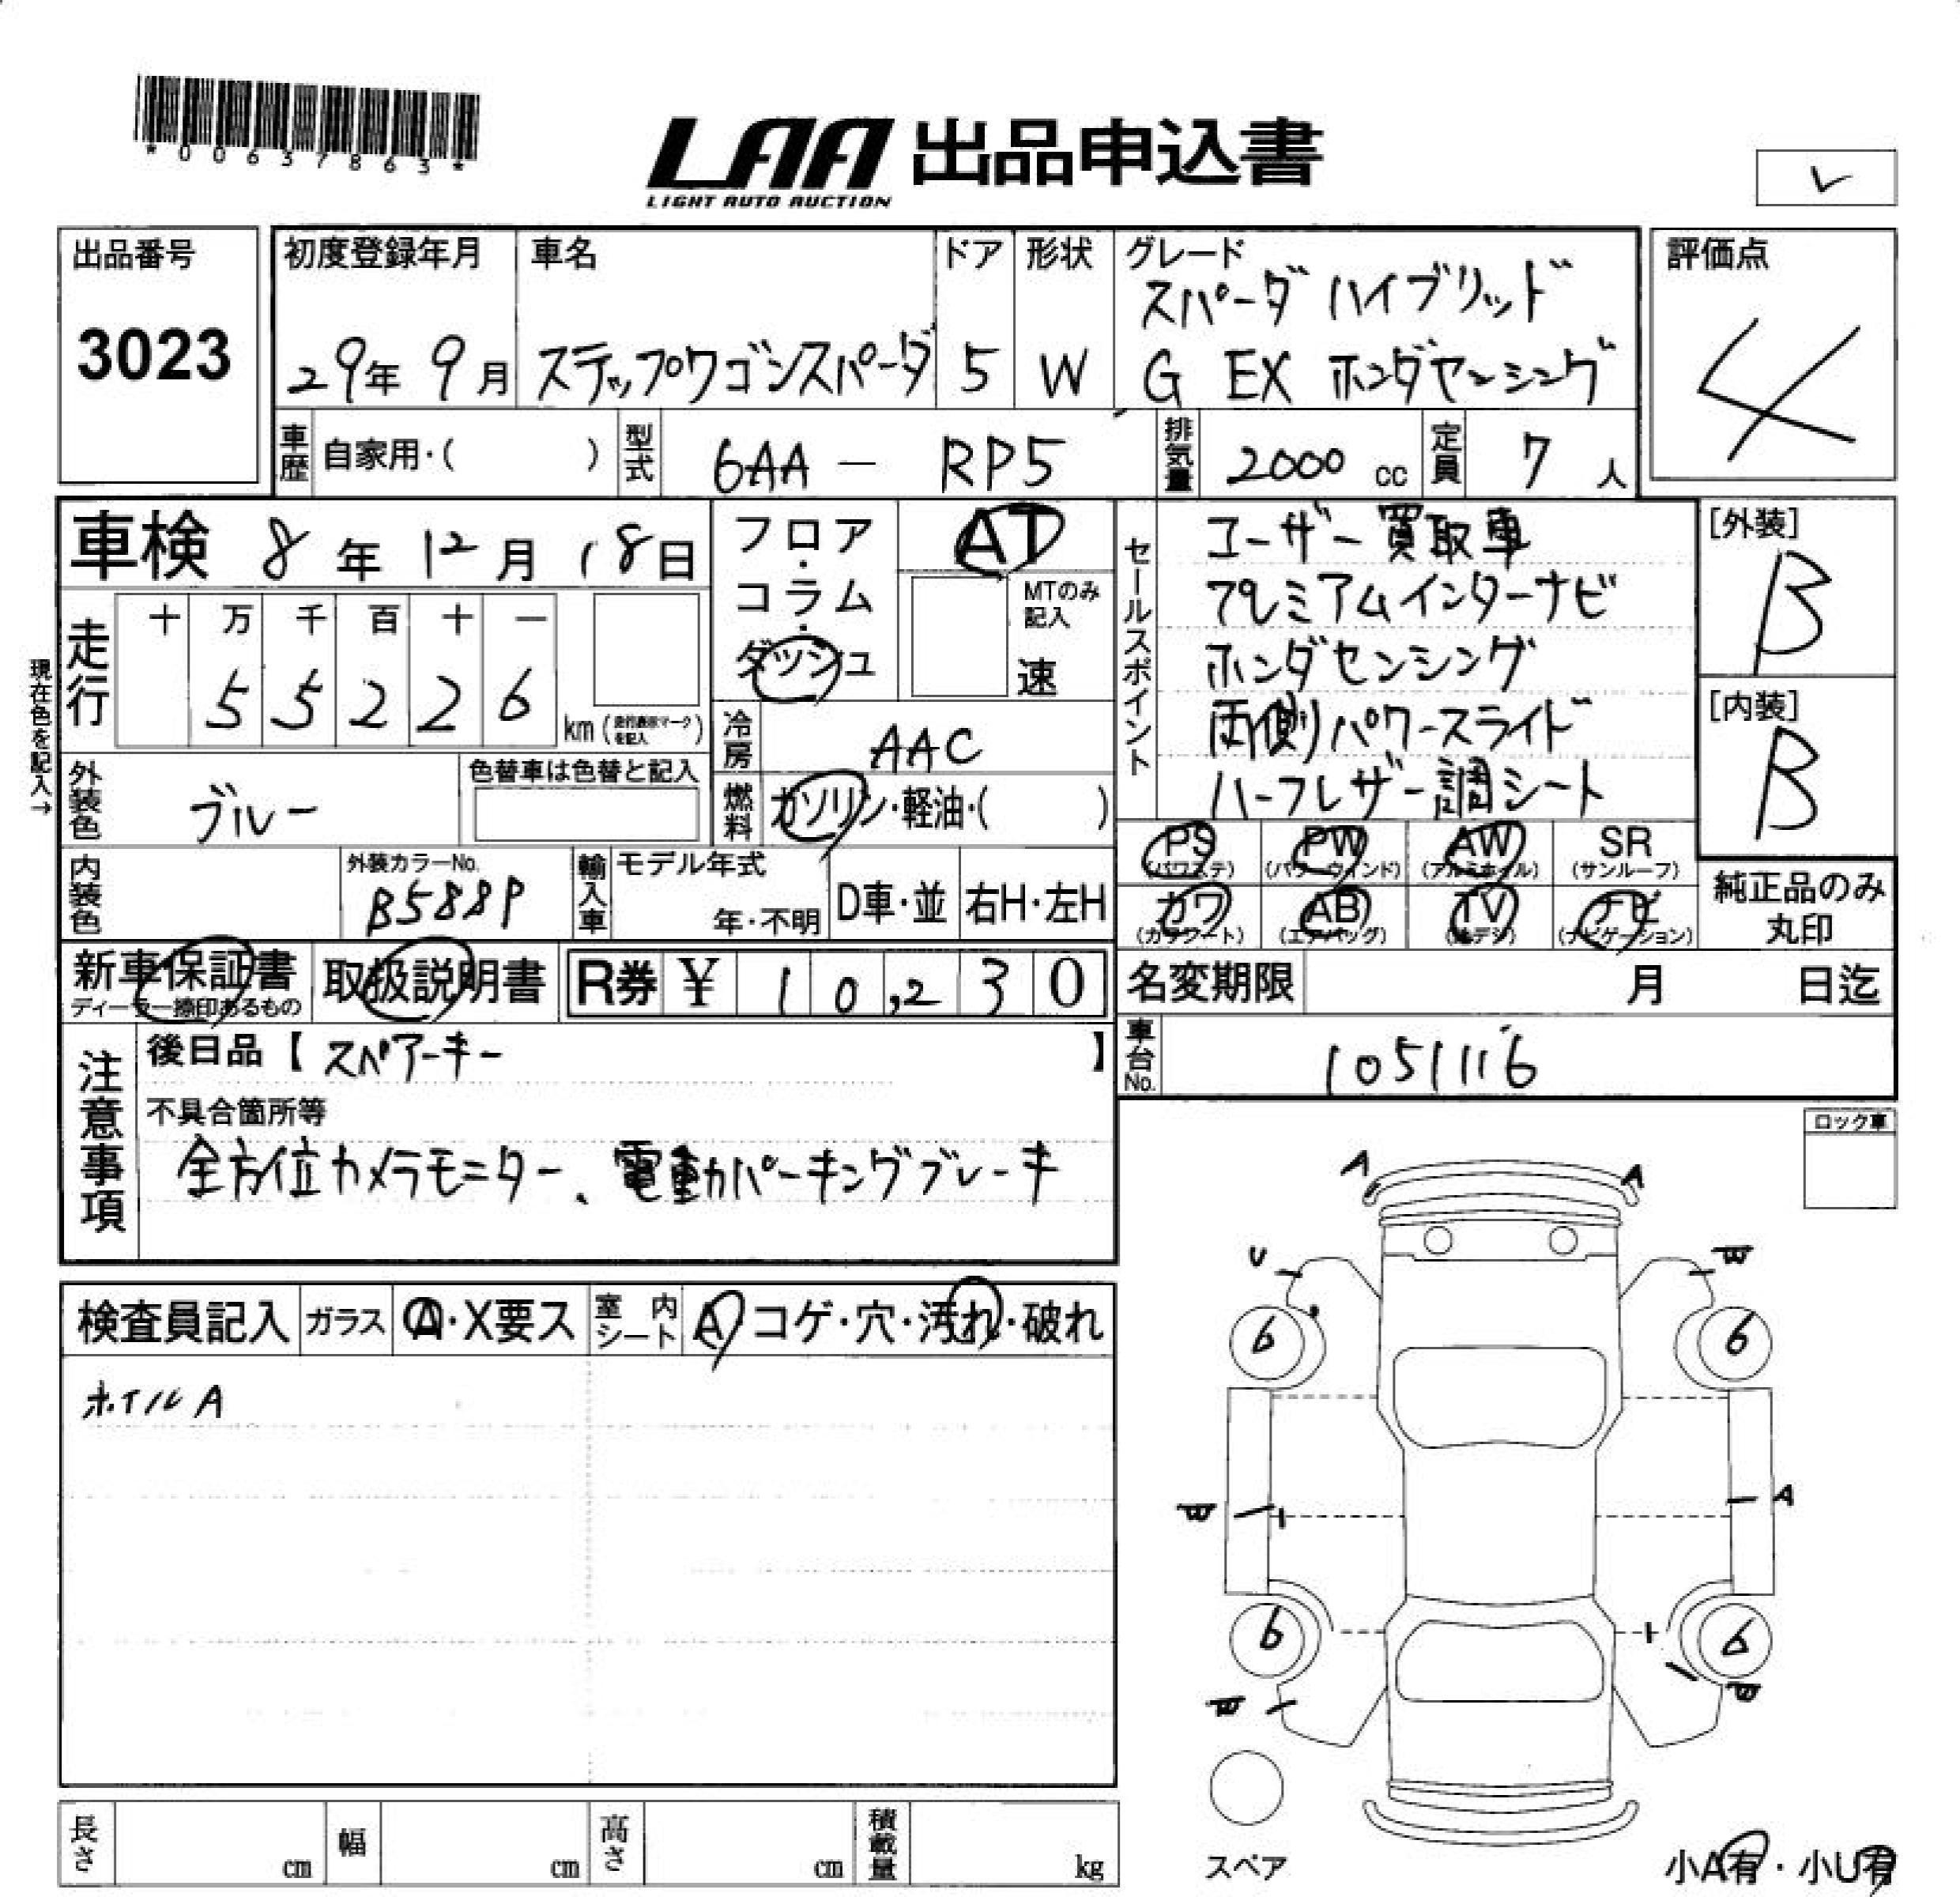 *00637863*
LAA 出品申込書
LIGHT AUTO AUCTION
レ
出品番号
3023
初度登録年月
29年 9月
車名
ステップワゴンスパーダ
ドア
5
形状
W
グレード
スパーダ ハイブリッド
G EX ホンダセンシング
評価点
4
車歴 自家用・( )
型式 6AA - RP5
排気量 2000 cc
定員 7 人
車検 8年 12月 18日
フロア・コラム・ダッシュ
AT
MTのみ記入
速
現在色を記入→
走行
十 万 千 百 十 一
5 5 2 2 6
km(走行表示マークを記入)
冷房 AAC
外装色 ブルー
色替車は色替と記入
燃料 ガソリン・軽油・( )
内装色
外装カラーNo.
B588P
輸入車
モデル年式
年・不明
D車・並
右H・左H
セールスポイント
ユーザー買取車
プレミアムインターナビ
ホンダセンシング
両側パワースライド
ハーフレザー調シート
[外装]
B
[内装]
B
PS (パワステ)
PW (パワーウィンド)
AW (アルミホイル)
SR (サンルーフ)
カワ (カワシート)
AB (エアバッグ)
TV (地デジ)
ナビ (ナビゲーション)
純正品のみ丸印
新車保証書
ディーラー捺印あるもの
取扱説明書
R券 ¥ 10,230
名変期限 月 日迄
車台No. 1051116
注意事項
後日品【 スペアーキー 】
不具合箇所等
全方位カメラモニター、電動パーキングブレーキ
ロック車
検査員記入
ガラス A・X要ス
室内シート A コゲ・穴・汚れ・破れ
ホイルA
A A
U
6 6
A
6 6
スペア
小A有・小U有
長さ cm
幅 cm
高さ cm
積載量 kg